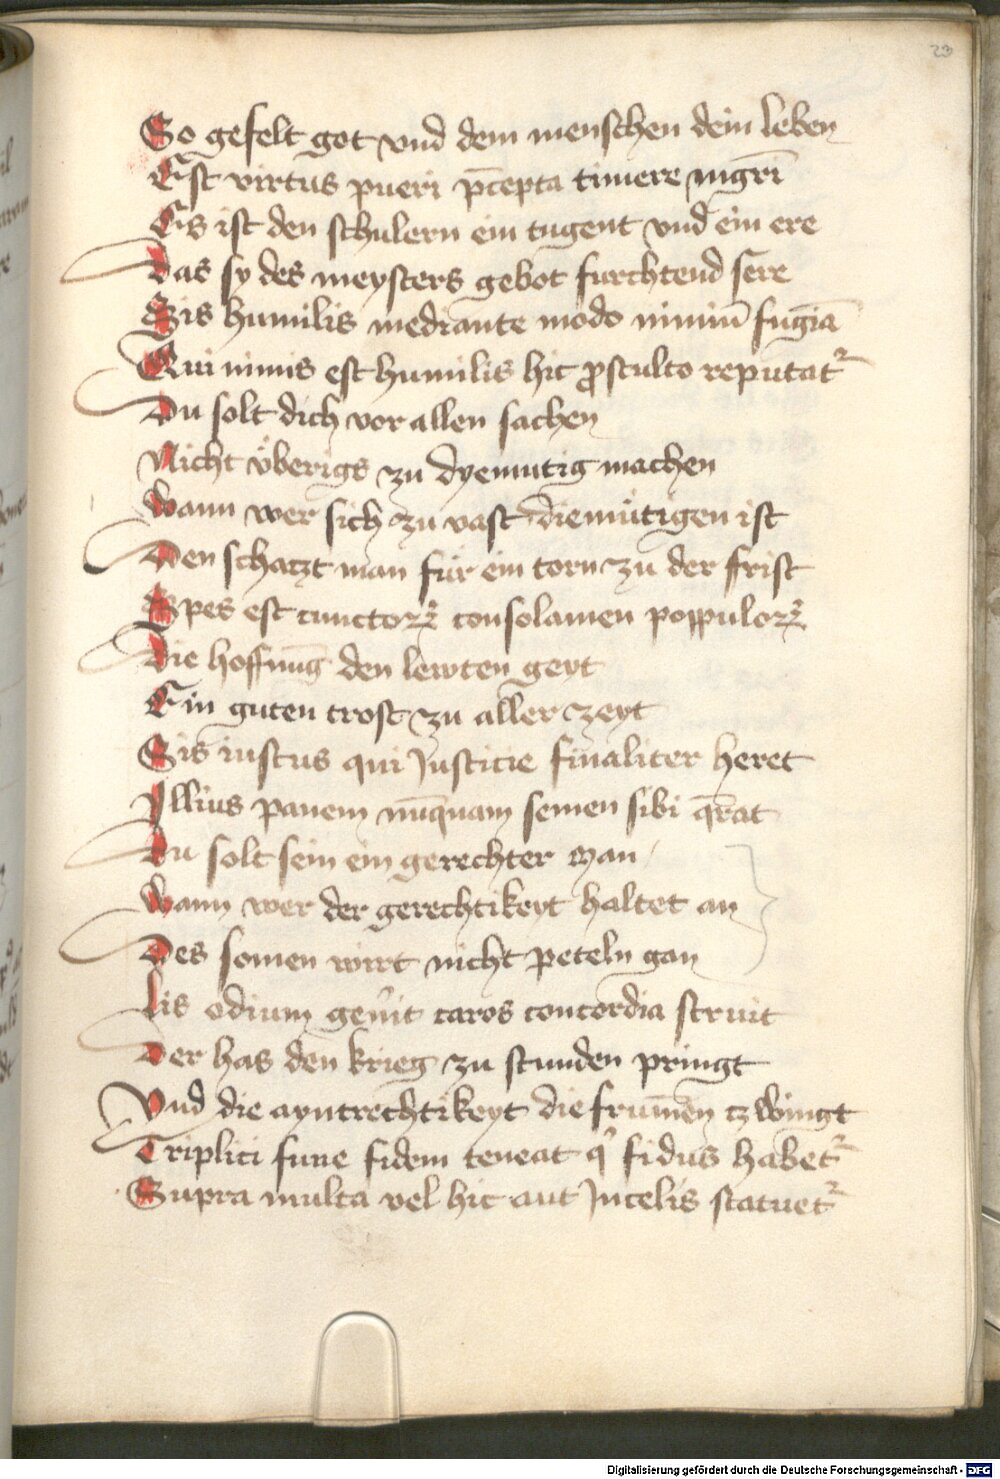 23
So gefelt got vnd dem menschen dein leben
Est virtus pueri p̄cepta timere mgr̄i
Es ist den schulern ein tugent vnd ein ere
Das sy des meysters gebot furchtend sere
Sis humilis mediante modo nimiū fugiā
Qui nimis est humilis hic ꝓ stulto reputat᷑
Du solt dich vor allen sachen
Nicht v̈berigs zu dyemutig machen
Wann wer sich zu vast diemütigen ist
Den schatzt man für ein torn zu der frist
Spes est cunctoꝝ consolamen poppuloꝝ
Die hoffnūg den lewten geyt
Ein guten trost zu aller zeyt
Sis iustus qui Justicie finaliter heret
Illius panem nūquam semen sibi q̄rat
Du solt sein ein gerechter man
Wann wer der gerechtikeyt haltet an
Des somen wirt nicht peteln gan
Lis odium genͥit caros concordia struit
Der has den krieg zu stunden pringt
Vnd die ayntrechtikeyt die frumēn tzwingt
Triplici fune fidem teneat qͥ fidus habet᷑
Supra multa vel hic aut Jncelis statuet᷑
Digitalisierung gefördert durch die Deutsche Forschungsgemeinschaft - DFG